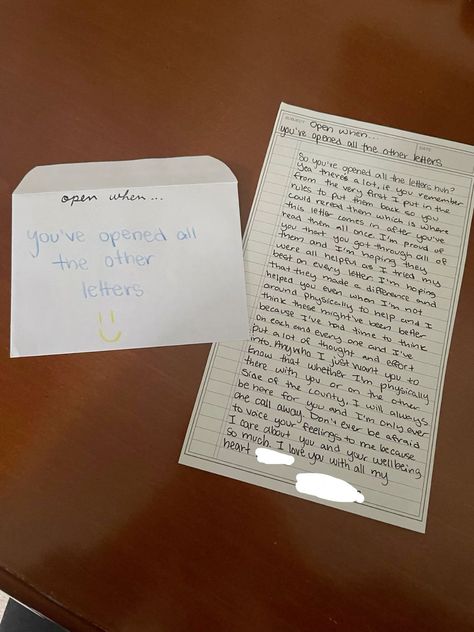 open when...
you've opened all
the other
letters
SUBJECT
DATE
Open when...
you've opened all the other letters
So you've opened all the letters huh?
Yea' theres a lot, if you remember
from the very first I put in the
rules to put them back so you
could reread them which is where
this letter comes in after you've
read them all once. I'm proud of
you that you got through all of
them and I'm hoping they
were all helpful as I tried my
best on every letter. I'm hoping
that they made a difference and
helped you even when I'm not
around physically to help and I
think these might've been better
because I've had time to think
on each and every one and I've
put a lot of thought and effort
into. Anywho I just want you to
know that whether I'm physically
there with you or on the other
side of the country, I will always
be here for you and I'm only ever
one call away. Don't ever be afraid
to voice your feelings to me because
I care about you and your wellbeing
so much. I love you with all my
heart